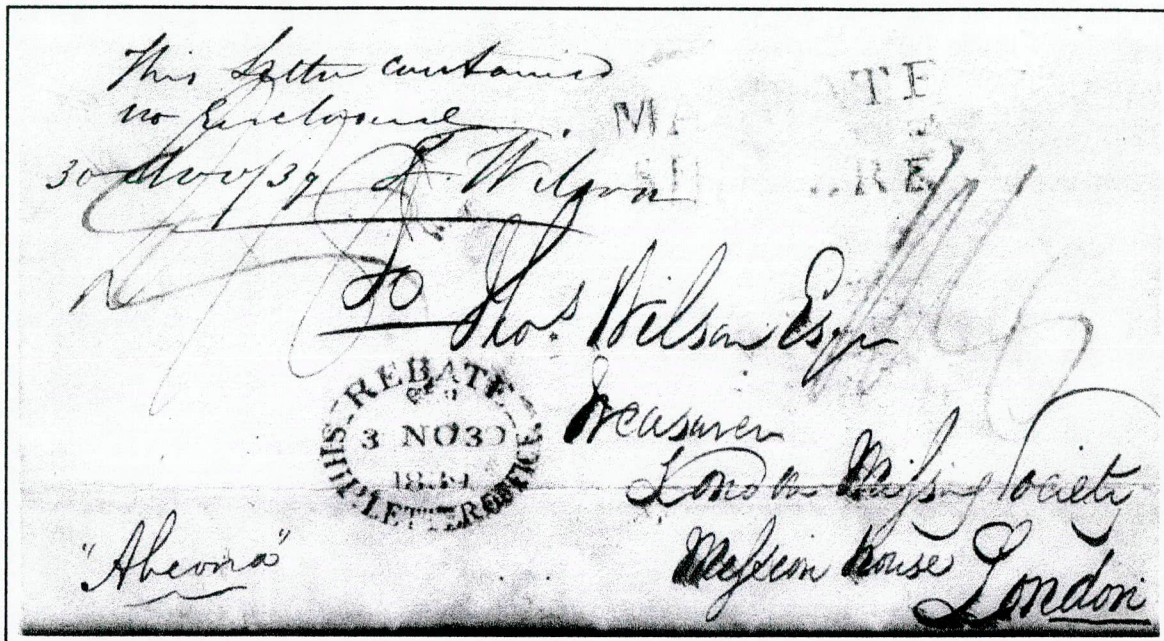 This Letter contained
no Enclosure
30 Nov/39 T. Wilson
To
Thos. Wilson Esqr
Treasurer
London Missing Society
Mission House
London
REBATE
3 NO30
1839
SHIP LETTER OFFICE
"Abeona"